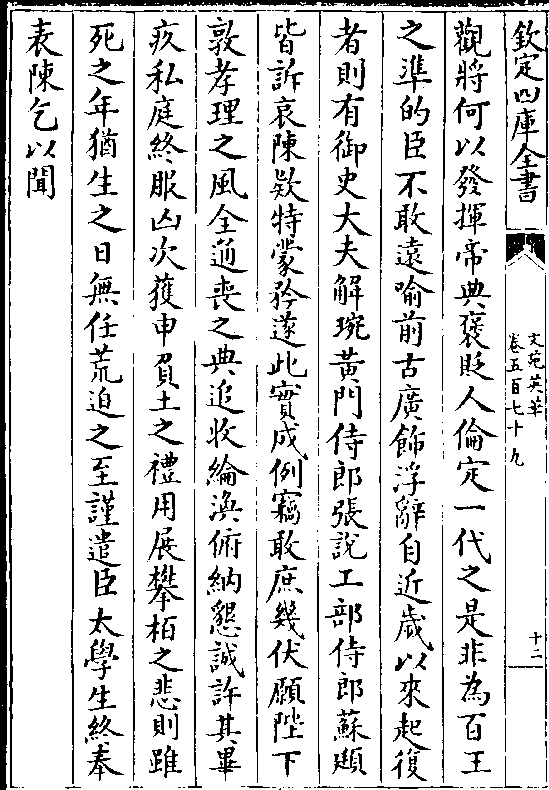 欽定四庫全書
文苑英華
卷五百七十九
十二
觀將何以發揮帝典褒貶人倫定一代之是非為百王
之準的臣不敢遠喻前古廣飾浮辭自近歲以來起復
者則有御史大夫解琬黄門侍郎張說工部侍郎蘇頲
皆訴哀陳欵特蒙矜遂此實成例竊敢庶幾伏願陛下
敦孝理之風全通喪之典追收綸渙俯納懇誠許其畢
疚私庭終服凶次獲申負土之禮用展攀柏之悲則雖
死之年猶生之日無任荒迫之至謹遣臣太學生終奉
表陳乞以聞